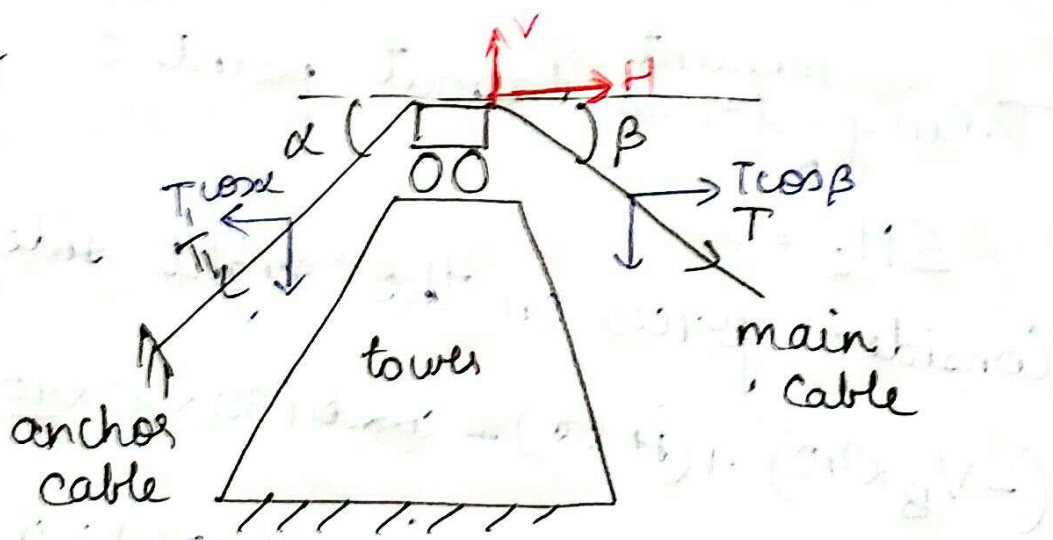 V
H
α
β
T₁cosα
T₁
Tcosβ
T
tower
main
cable
anchor
cable